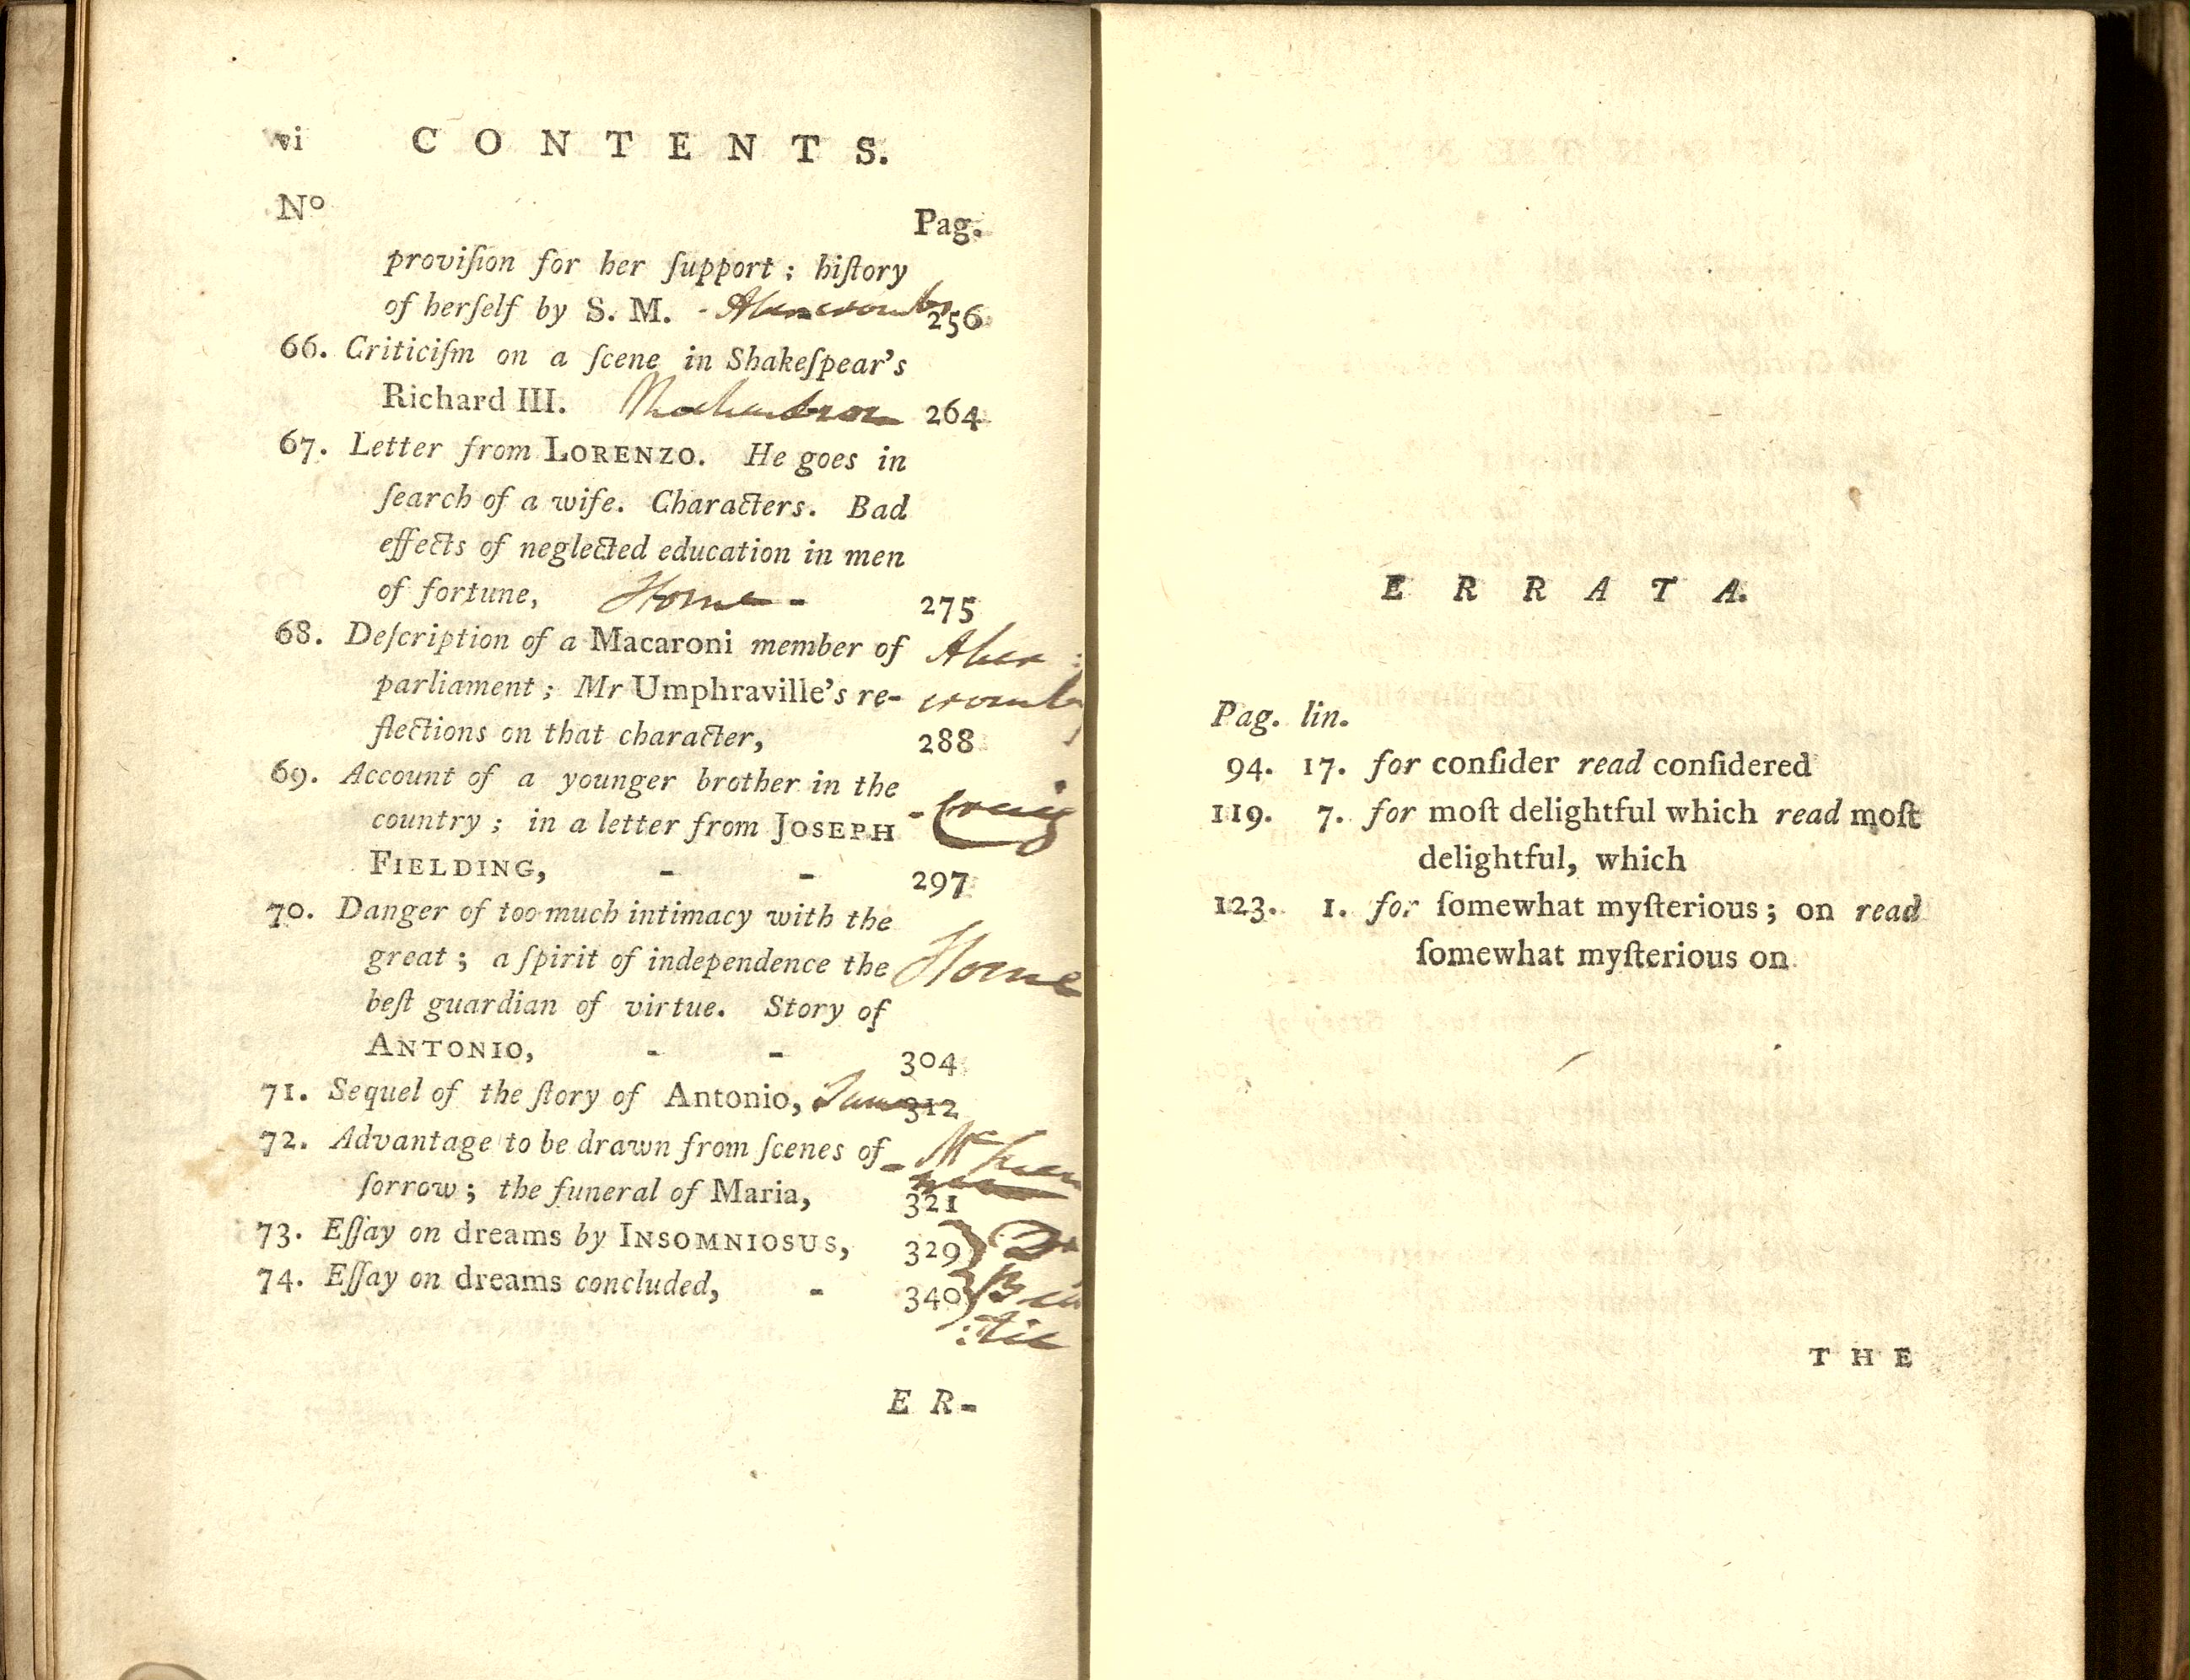 vi C O N T E N T S.
Nº
Pag.
proviſion for her ſupport; hiſtory
of herſelf by S. M. - Abercromby 256
66. Criticiſm on a ſcene in Shakeſpear's
Richard III. 264
67. Letter from LORENZO. He goes in
ſearch of a wife. Characters. Bad
effects of neglected education in men
of fortune, Home - 275
68. Deſcription of a Macaroni member of Aber :
parliament; Mr Umphraville's re- cromby
flections on that character, 288
69. Account of a younger brother in the
country; in a letter from JOSEPH - Craig
FIELDING, - - 297
70. Danger of too much intimacy with the
great; a ſpirit of independence the Home
beſt guardian of virtue. Story of
ANTONIO, - - 304
71. Sequel of the ſtory of Antonio, 312
72. Advantage to be drawn from ſcenes of -
ſorrow; the funeral of Maria, 321
73. Eſſay on dreams by INSOMNIOSUS, 329 } Dr
74. Eſſay on dreams concluded, - 340 } Bea
:tie
E R-
E R R A T A.
Pag. lin.
94. 17. for conſider read conſidered
119. 7. for moſt delightful which read moſt
delightful, which
123. 1. for ſomewhat myſterious; on read
ſomewhat myſterious on
T H E